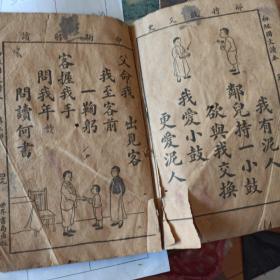 我有泥人
鄰兒持一小鼓
欲與我交換
我愛小鼓
更愛泥人
父命我 出見客
我至客前
一鞠躬
客握我手
問我年
問讀何書
世界書局出版